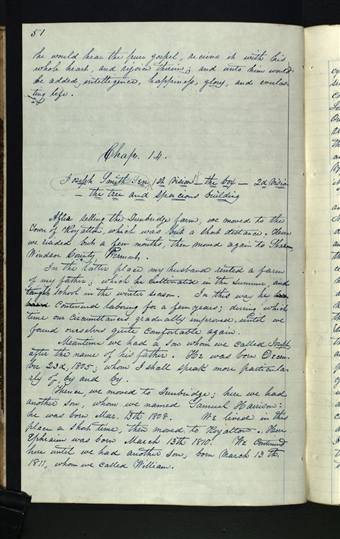 51
he would hear the pure gospel, receive it with his
whole heart, and rejoice therein; and unto him would
be added, intelligence, happiness, glory, and everlas-
ting life.
Chap. 14.
Joseph Smith Sen. 1st Vision — the box — 2d Vision
— the tree and spacious building
After selling the Tunbridge farm, we moved to the
town of Royalton, which was but a short distance. Here
we resided but a few months, then moved again to Sharon
Windsor County Vermont.
In the latter place my husband rented a farm
of my father; which he cultivated in the Summer, and
taught School in the winter season. In this way he
continued laboring for a few years; during which
time our circumstances gradually improved until we
found ourselves quite comfortable again.
Meantime we had a son whom we called Joseph
after the name of his father. He was born Decem-
ber 23d, 1805; whom I shall speak more particular-
ly of, by and by.
Thence, we moved to Tunbridge; here we had
another son, whom we named Samuel Harrison:
he was born Mar. 13th 1808. We lived in this
place a short time, then moved to Royalton. Here
Ephraim was born March 13th 1810. We continued
here until we had another son, born March 13th
1811, whom we called William.